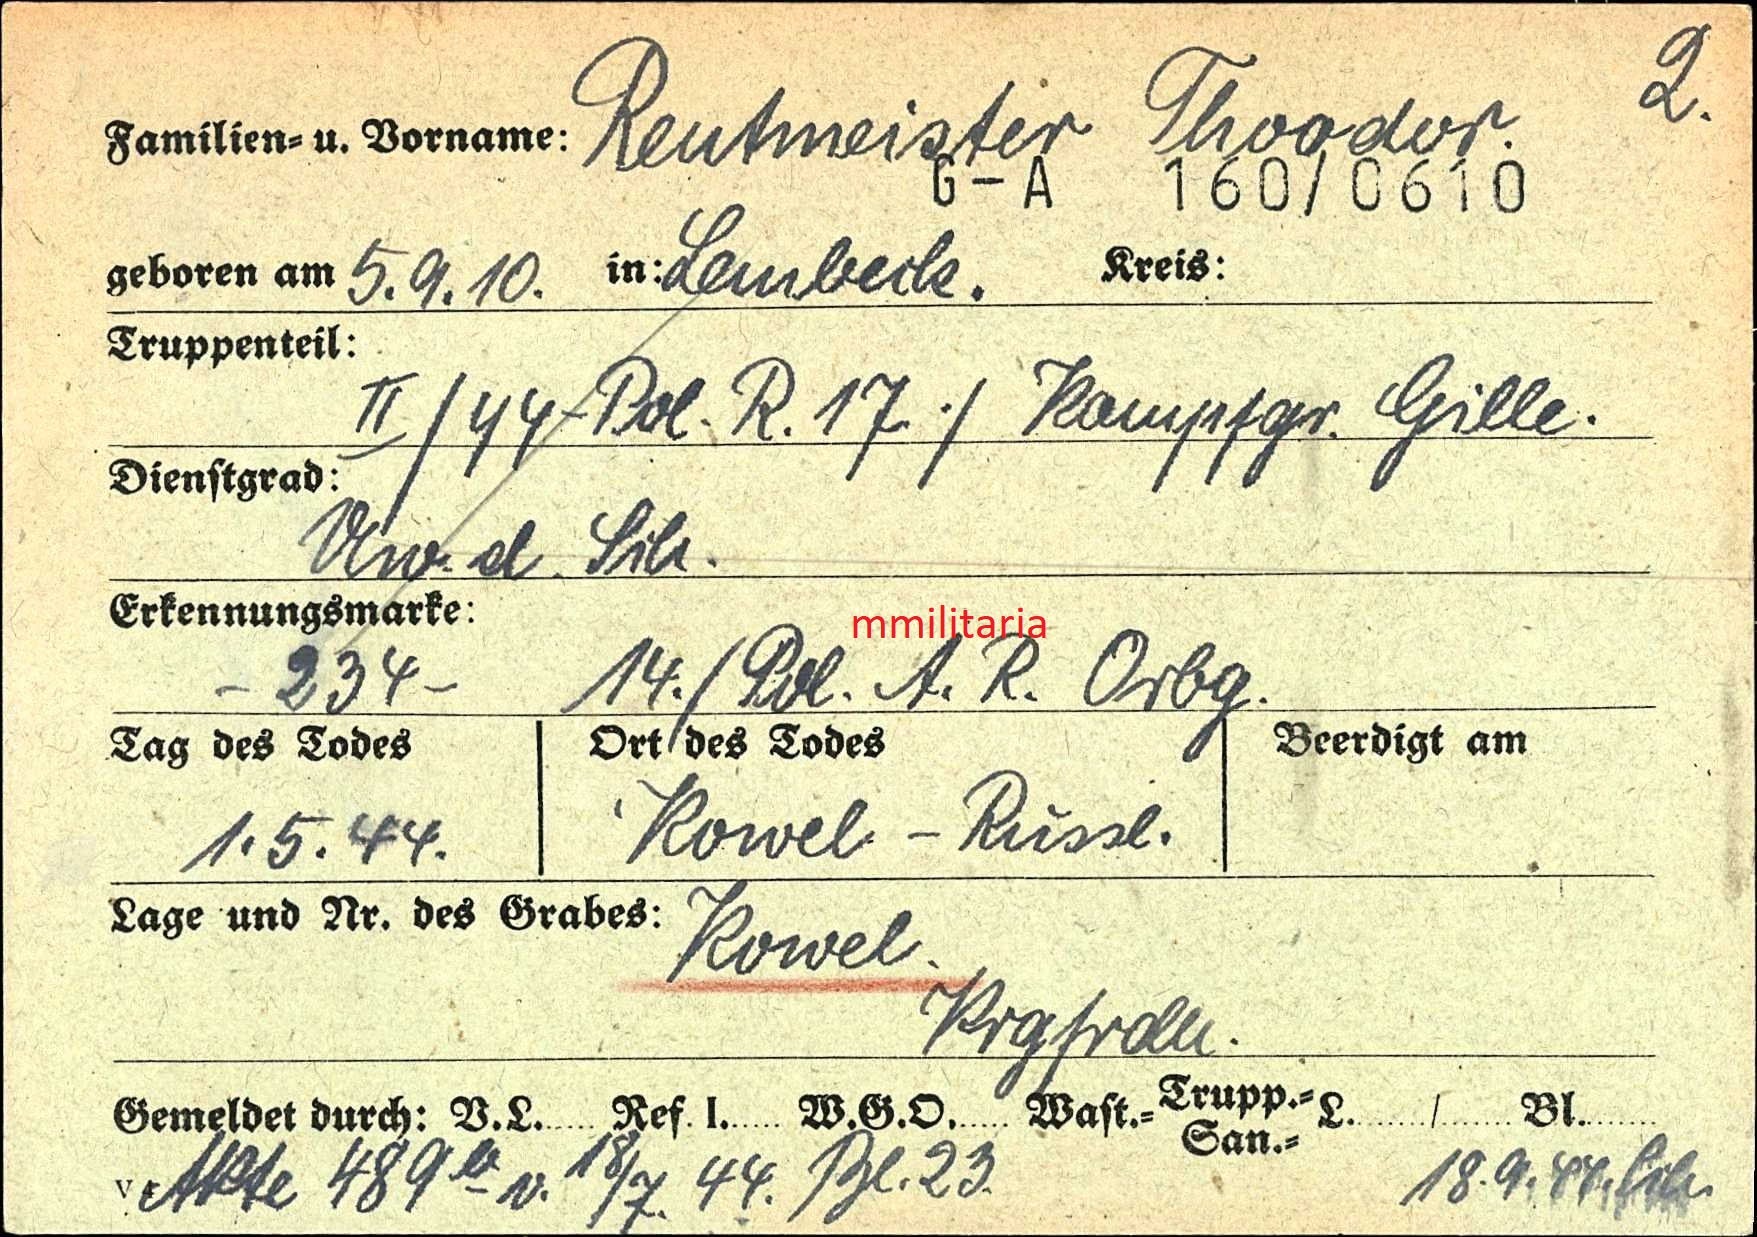 2.
Familien- u. Vorname: Rentmeister Theodor.
G-A 160/0610
geboren am 5.9.10. in: Lembeck. Kreis:
Truppenteil:
II/44-Pol. R. 17./ Kampfgr. Gille.
Dienstgrad:
Uw. d. Sch.
Erkennungsmarke:
mmilitaria
-234- 14./Pol. A. R. Orbg.
Tag des Todes Ort des Todes Beerdigt am
1.5.44. Kowel - Russl.
Lage und Nr. des Grabes: Kowel.
Krgfrdh.
Gemeldet durch: V.L...... Ref. I...... W.G.O...... Wast.= Trupp.= San.= L......./....... Bl.......
Akte 489 v. 18/7. 44. Bl. 23. 18.9.44.